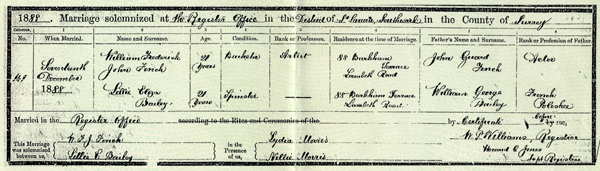 1888. Marriage solemnized at the Register Office in the District of St Saviour, Southwark in the County of Surrey
Columns:
When Married. Name and Surname. Age. Condition. Rank or Profession. Residence at the time of Marriage. Father's Name and Surname. Rank or Profession of Father.
Seventeenth December 1888
William Frederick John Finch 21 Years Bachelor Artist 88 Barkham Terrace Lambeth Road John Finch
Lillie Eliza Bailey 21 Years Spinster 88 Barkham Terrace Lambeth Road William George Bailey French Polisher
Married in the Register Office according to the Rites and Ceremonies of the by Certificate before me,
This Marriage was solemnized between us, W. F. J. Finch Lillie E. Bailey in the Presence of us, Lydia Morris Nellie Morris W. P. Williams Registrar
Howard C Jones Supt Registrar